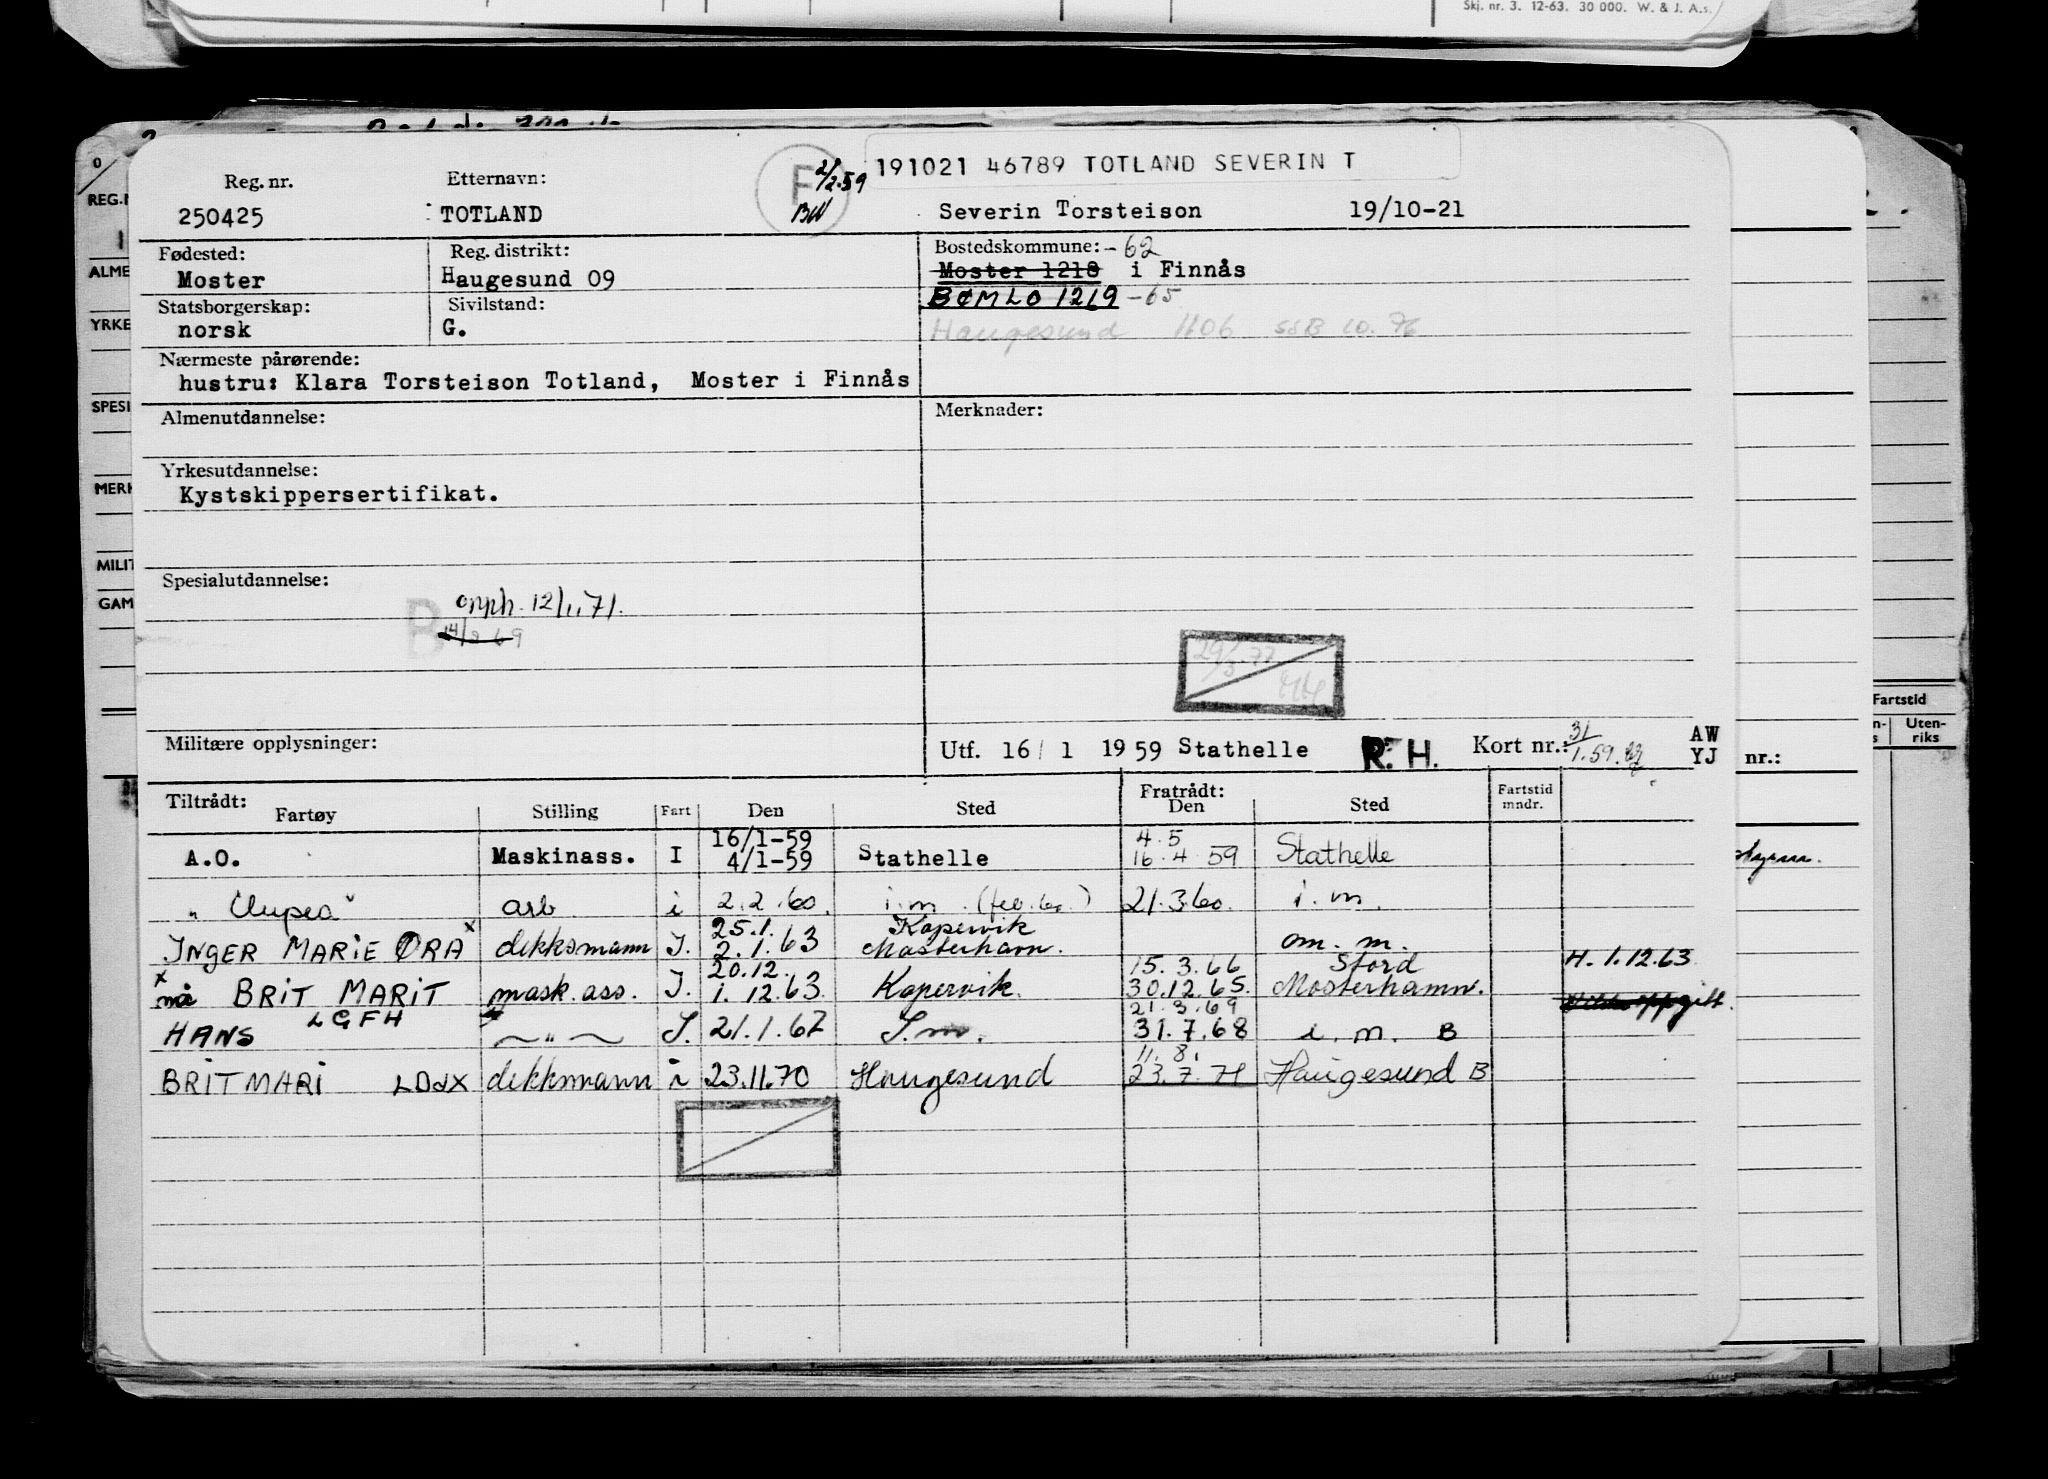 Skj. nr. 3. 12-63. 30 000. W. & J. A.s.
191021 46789 TOTLAND SEVERIN T
Reg. nr. Etternavn: F 2/2.59
250425 TOTLAND BW Severin Torsteison 19/10-21
Fødested: Reg. distrikt: Bostedskommune: -62
Moster Haugesund 09 Moster 1218 i Finnås
Statsborgerskap: Sivilstand: BØMLO 1219 -65
norsk G. Haugesund 1106 SSB 10. 76
Nærmeste pårørende:
hustru: Klara Torsteison Totland, Moster i Finnås
Almenutdannelse: Merknader:
Yrkesutdannelse:
Kystskippersertifikat.
Spesialutdannelse:
B 12/11.71.
14/2 69
29/3.77
Militære opplysninger: Utf. 16/ 1 1959 Stathelle R. H. Kort nr.: 31/1.59. AW
YJ nr.:
Tiltrådt: Fratrådt:
Fartøy Stilling Fart Den Sted Den Sted Fartstid mndr.
16/1-59 4.5
A.O. Maskinass. I 4/1-59 Stathelle 16.4 59 Stathelle
arb i 2.2.60. i.m. 21.3.60. i.m.
25.1. Kopervik
INGER MARIE ORA x dekksmann I. 2.1.63 Mosterhavn. om. m.
x 20.12. 15.3.66 Stord H. 1.12.63
nå BRIT MARIT mask. ass. I. 1.12.63. Kopervik. 30.12.65. Mosterhamn.
21.3.69
HANS LGFH — " — I. 21.1.67 I.m. 31.7.68 i.m. B
11.8.
BRITMARI LDJX dekksmann i 23.11.70 Haugesund 23.7.71 Haugesund B
REG.N
ALME
YRKE
SPESI
MERK
MILIT
GAM
Fartstid
Uten-
riks